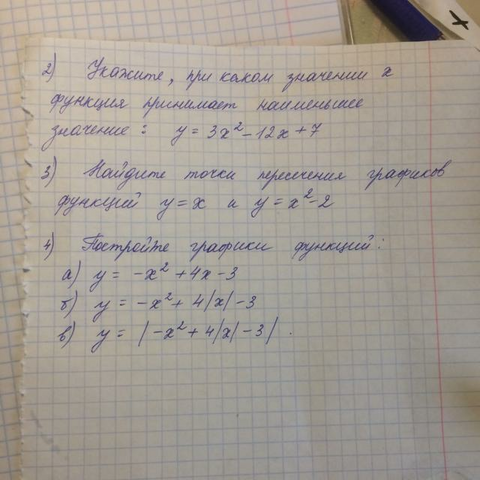 2) Укажите, при каком значении x
функция принимает наименьшее
значение: y = 3x² - 12x + 7
3) Найдите точки пересечения графиков
функций y = x и y = x² - 2
4) Постройте графики функций:
а) y = -x² + 4x - 3
б) y = -x² + 4|x| - 3
в) y = |-x² + 4|x| - 3|.